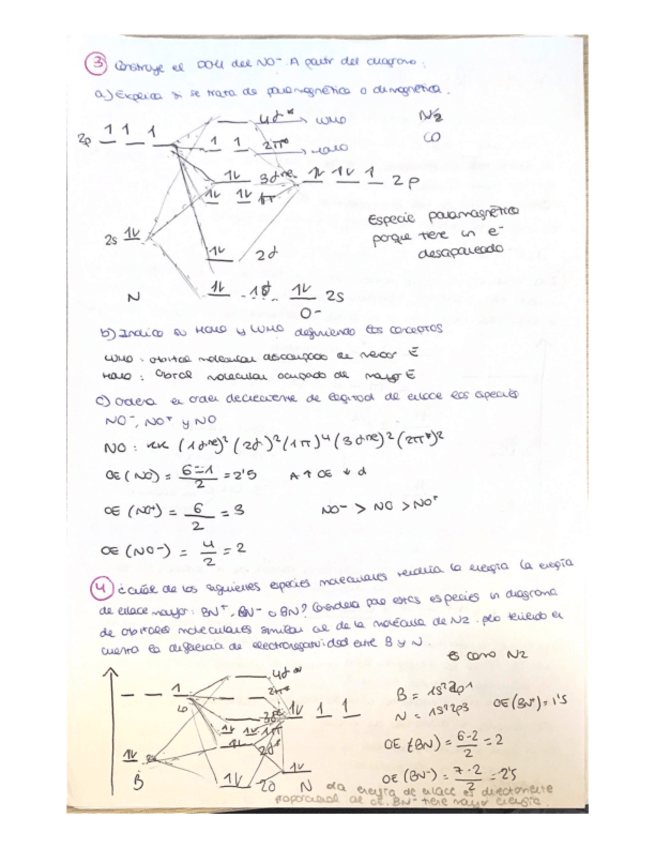 ③ Construye el DOM del NO⁻ A partir del diagrama:
a) Explica si se trata de paramagnética o diamagnética.
4σ* → LUMO N2
2p 1 1 1 1 1 2π* → HOMO CO
1↓ 3σ 1↓ 1↓ 1 2p
1↓ 1↓ 1π
Especie paramagnética
porque tiene un e⁻
desapareado
2s 1↓
1↓ 2σ
N 1↓ 1σ 1↓ 2s
O-
b) Indica su HOMO y LUMO definiendo los conceptos
LUMO: orbital molecular desocupado de menor E
HOMO: Orbital molecular ocupado de mayor E
c) Ordena en orden decreciente de longitud de enlace las especies
NO⁻, NO⁺ y NO
NO: KK (1σ)² (2σ)² (1π)⁴ (3σ)² (2π*)²
OE (NO) = 6-1/2 = 2'5 A ↑ OE ↓ d
OE (NO⁺) = 6/2 = 3 NO⁻ > NO > NO⁺
OE (NO⁻) = 4/2 = 2
④ ¿Cuál de las siguientes especies moleculares tendría la energía la energía
de enlace mayor: BN⁺, BN⁻ o BN? Considera para estas especies un diagrama
de orbitales moleculares similar al de la molécula de N2, pero teniendo en
cuenta la diferencia de electronegatividad entre B y N.
Es como N2
4σ*
1 2π*
3σ 1↓ 1 1
B = 1s²2p1
N = 1s²2p3 OE (BN⁺) = 1'5
1↓ 1↓ 1π
1↓ 1↓ 2σ*
OE (BN) = 6-2/2 = 2
B 1↓ 2σ N 1↓
OE (BN⁻) = 7-2/2 = 2'5
la energía de enlace es directamente
proporcional al OE. BN⁻ tiene mayor energía.